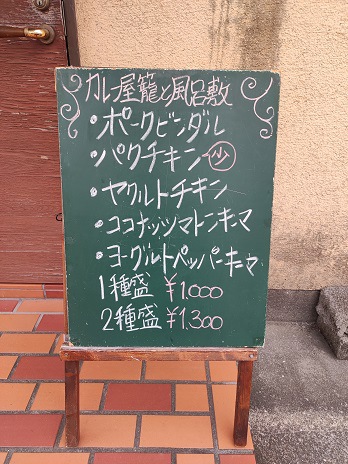 カレー屋籠と風呂敷
・ポークビンダル
・パクチキン 少
・ヤクルトチキン
・ココナッツマトンキーマ
・ヨーグルトペッパーキーマ
1種盛 ¥1.000
2種盛 ¥1.300